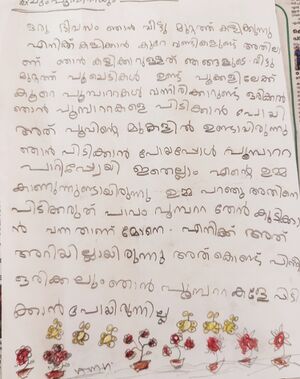 ഒരു ദിവസം ഞാൻ വീട്ടു മുറ്റത്ത് കളിക്കുന്നു
എനിക്ക് കളിക്കാൻ കുറേ വണ്ടികളുണ്ട് അതിലാ
ണ് ഞാൻ കളിക്കാറുള്ളത് ഞങ്ങളുടെ വീട്ടു
മുറ്റത്ത് പൂച്ചെടികൾ ഉണ്ട് പൂക്കളിലേക്ക്
കുറെ പൂമ്പാറ്റകൾ വന്നിരിക്കാറുണ്ട് ഒരിക്കൽ
ഞാൻ പൂമ്പാറ്റകളെ പിടിക്കാൻ പോയി
അത് പൂവിന്റെ മുകളിൽ ഉണ്ടായിരുന്നു
ഞാൻ പിടിക്കാൻ പോയപ്പോൾ പൂമ്പാറ്റ
പാറിപ്പോയി ഇതെല്ലാം എന്റെ ഉമ്മ
കാണുന്നുണ്ടായിരുന്നു ഉമ്മ പറഞ്ഞു അതിനെ
പിടിക്കരുത് പാവം പൂമ്പാറ്റ തേൻ കുടിക്കാ
ൻ വന്നതാണ് മോനെ. എനിക്ക് അത്
അറിയില്ലായിരുന്നു അത് കൊണ്ട് പിന്നീ
ഒരിക്കലും ഞാൻ പൂമ്പാറ്റകളേ പിടി
ക്കാൻ പോയിരുന്നില്ല